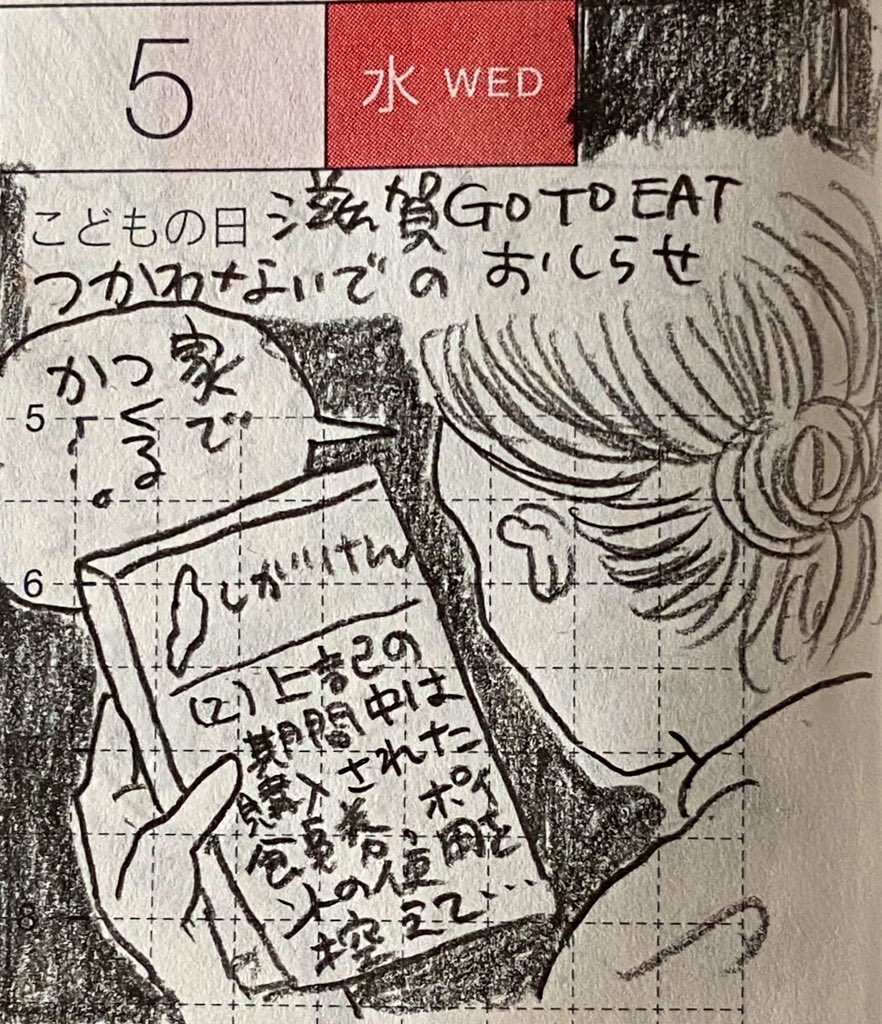 5
水 WED
こどもの日
滋賀GO TO EAT
つかわないでの おしらせ
家で
つくる
か…。
5
6
しがけん
(2)上記の
期間中は
購入された
食事券、ポイ
ントの使用を
控えて…
8